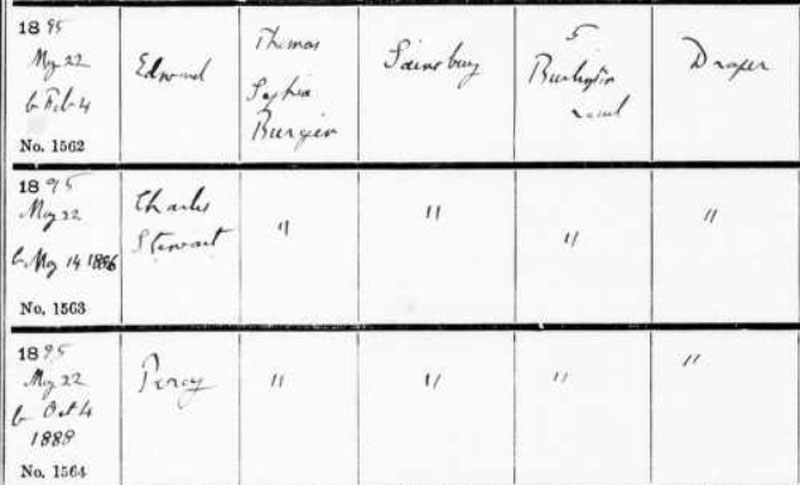 1895
May 22
b Feb 4
No. 1562
Edward
Thomas
Sophia
Burgin
Sainsbury
5
Burlington
Draper
1895
May 22
b May 14 1886
No. 1563
Charles
Stewart
"
"
"
"
1895
May 22
b Oct 4
1888
No. 1564
Percy
"
"
"
"